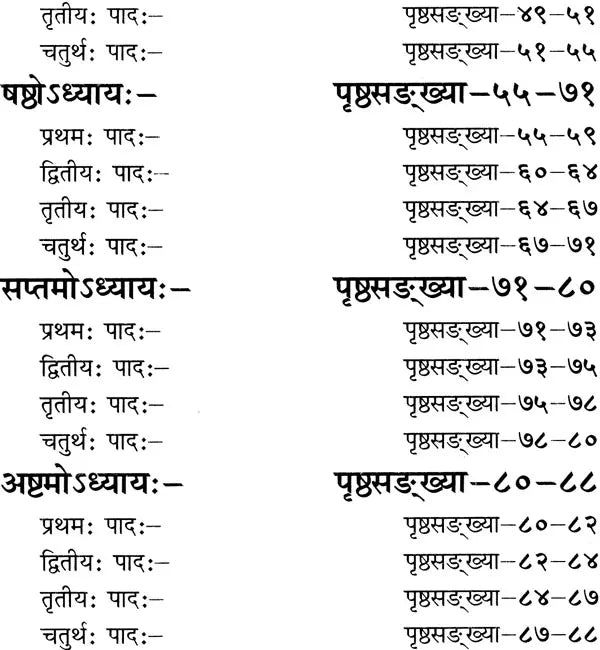 तृतीयः पादः– पृष्ठसङ्ख्या–४९–५१
चतुर्थः पादः– पृष्ठसङ्ख्या–५१–५५
षष्ठोऽध्यायः– पृष्ठसङ्ख्या–५५–७१
प्रथमः पादः– पृष्ठसङ्ख्या–५५–५९
द्वितीयः पादः– पृष्ठसङ्ख्या–६०–६४
तृतीयः पादः– पृष्ठसङ्ख्या–६४–६७
चतुर्थः पादः– पृष्ठसङ्ख्या–६७–७१
सप्तमोऽध्यायः– पृष्ठसङ्ख्या–७१–८०
प्रथमः पादः– पृष्ठसङ्ख्या–७१–७३
द्वितीयः पादः– पृष्ठसङ्ख्या–७३–७५
तृतीयः पादः– पृष्ठसङ्ख्या–७५–७८
चतुर्थः पादः– पृष्ठसङ्ख्या–७८–८०
अष्टमोऽध्यायः– पृष्ठसङ्ख्या–८०–८८
प्रथमः पादः– पृष्ठसङ्ख्या–८०–८२
द्वितीयः पादः– पृष्ठसङ्ख्या–८२–८४
तृतीयः पादः– पृष्ठसङ्ख्या–८४–८७
चतुर्थः पादः– पृष्ठसङ्ख्या–८७–८८